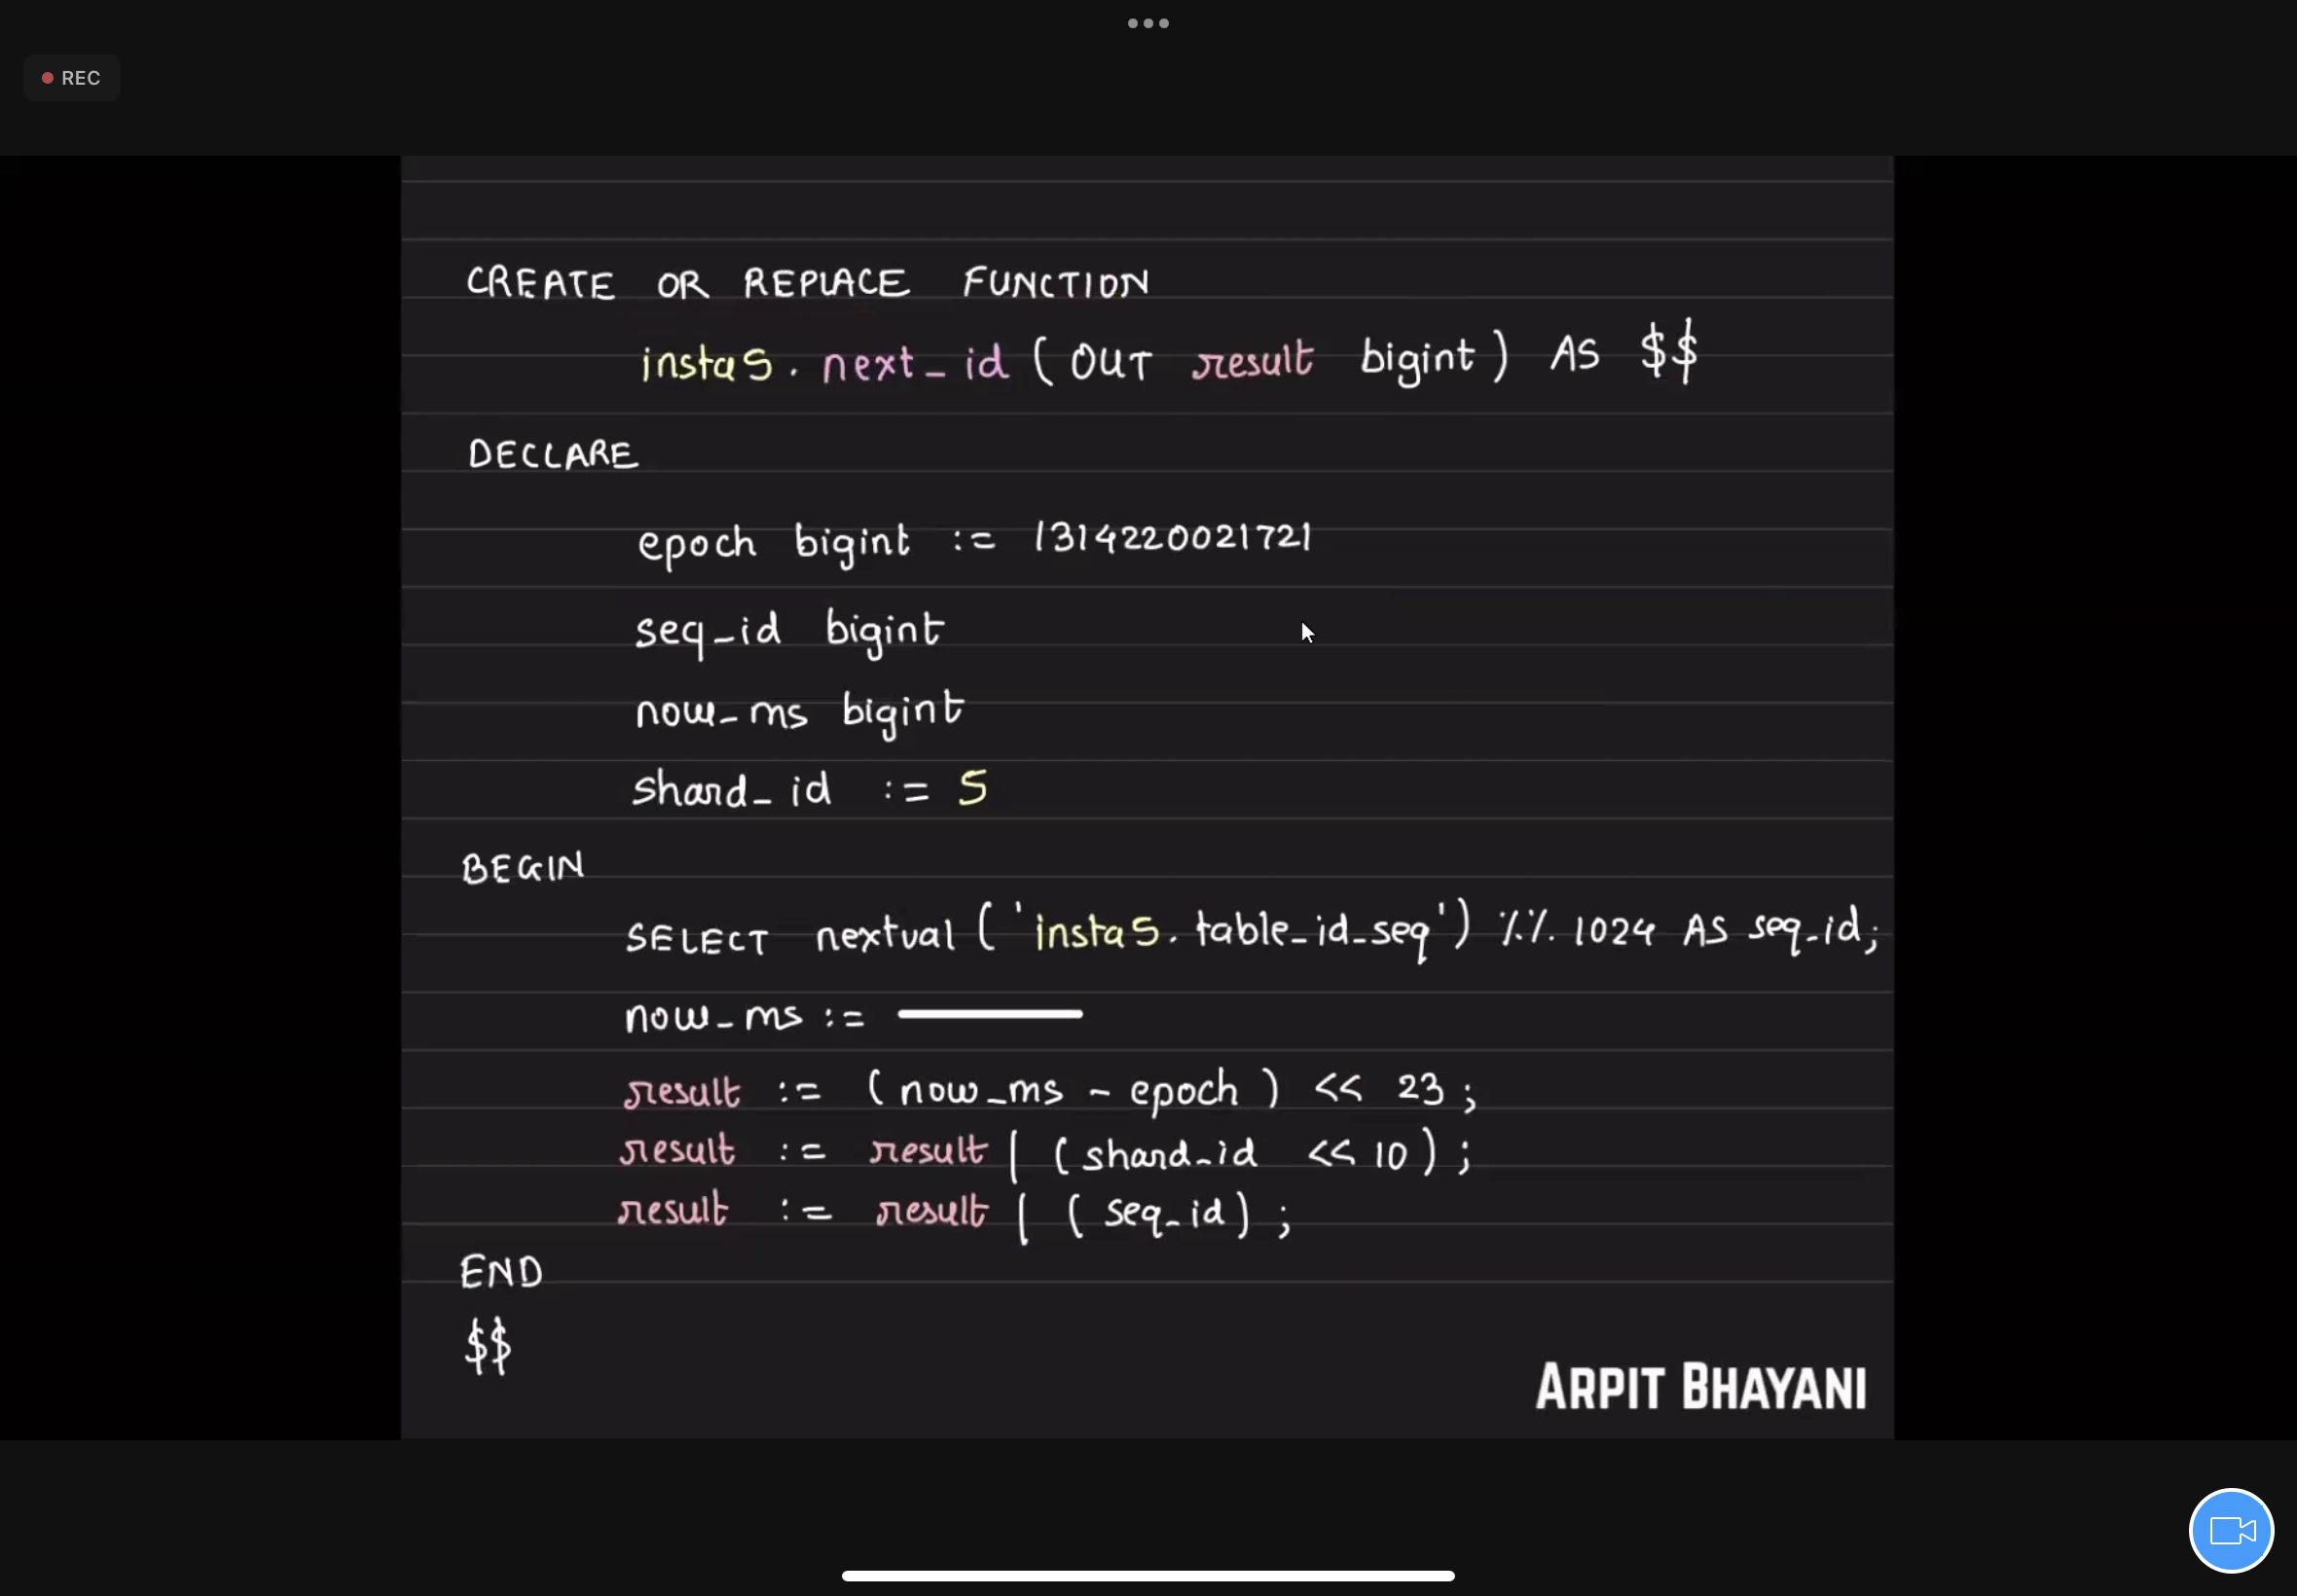 REC
CREATE OR REPLACE FUNCTION
insta5.next_id (OUT result bigint) AS $$
DECLARE
epoch bigint := 1314220021721
seq_id bigint
now_ms bigint
shard_id := 5
BEGIN
SELECT nextval ('insta5.table_id_seq') %% 1024 AS seq_id;
now_ms :=
result := (now_ms - epoch) << 23;
result := result | (shard_id << 10);
result := result | (seq_id);
END
$$
ARPIT BHAYANI